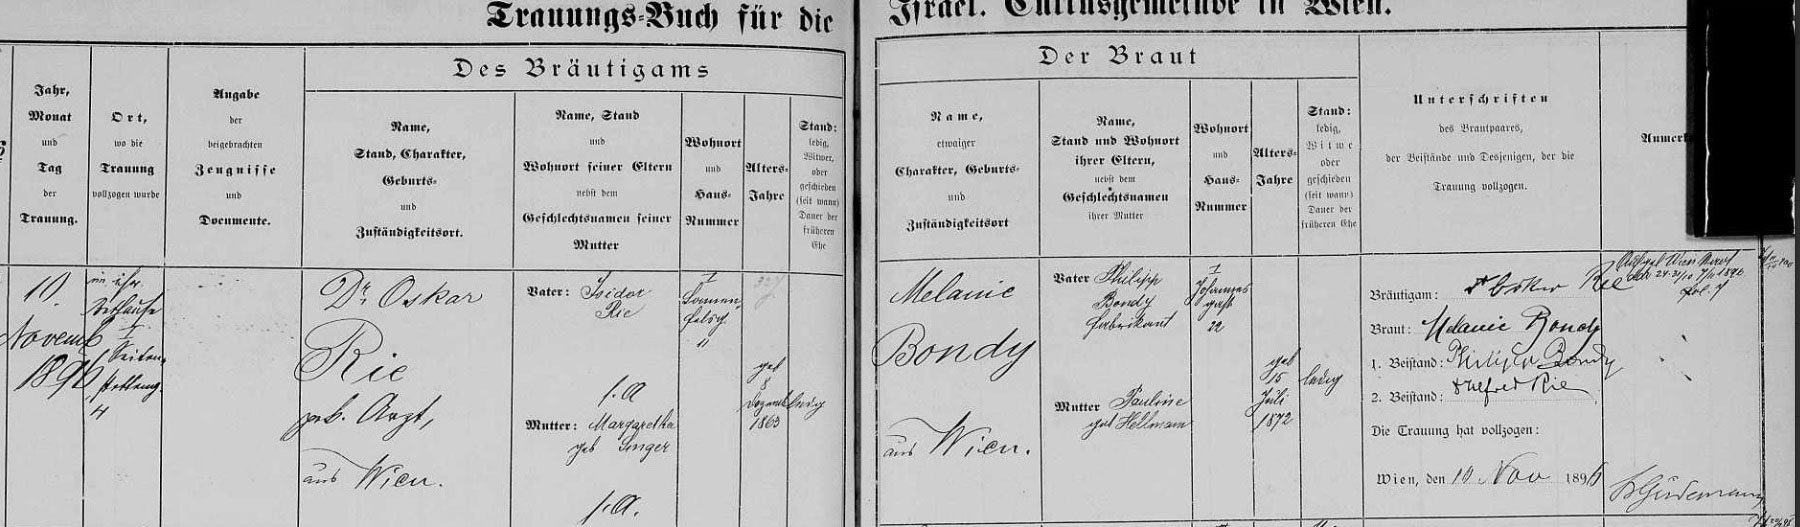 Trauungs-Buch für die
Israel. Cultusgemeinde in Wien.
Des Bräutigams
Der Braut
Jahr,
Monat
und
Tag
der
Trauung.
Ort,
wo die
Trauung
vollzogen wurde
Angabe
der
beigebrachten
Zeugnisse
und
Documente.
Name,
Stand, Charakter,
Geburts-
und
Zuständigkeitsort.
Name, Stand
und
Wohnort seiner Eltern
nebst dem
Geschlechtsnamen seiner
Mutter
Wohnort
und
Haus-
Nummer
Alters-
Jahre
Stand:
ledig,
Witwer,
oder
geschieden
(seit wann)
Dauer der
früheren
Ehe
Name,
etwaiger
Charakter, Geburts-
und
Zuständigkeitsort
Name,
Stand und Wohnort
ihrer Eltern,
nebst dem
Geschlechtsnamen
ihrer Mutter
Wohnort
und
Haus-
Nummer
Alters-
Jahre
Stand:
ledig,
Witwe
oder
geschieden
(seit wann)
Dauer der
früheren Ehe
Unterschriften
des Brautpaares,
der Beistände und Desjenigen, der die
Trauung vollzogen.
Anmerk
10.
Novemb
1896
I
4
Dr. Oskar
Rie
geb. Arzt,
aus Wien.
Vater: Isidor
Rie
Mutter: Margaretha
geb Singer
I
geb
8
1863
ledig
Melanie
Bondy
aus Wien.
Vater Philipp
Bondy
Fabrikant
Mutter Pauline
geb Hellmann
I
Johannes
gasse
22
geb
15
Juli
1872
ledig
Bräutigam: Dr Oskar Rie
Braut: Melanie Bondy
1. Beistand: Philipp Bondy
2. Beistand: Dr Alfred Rie
Die Trauung hat vollzogen:
Wien, den 10 Nov 1896
Dr Güdemann